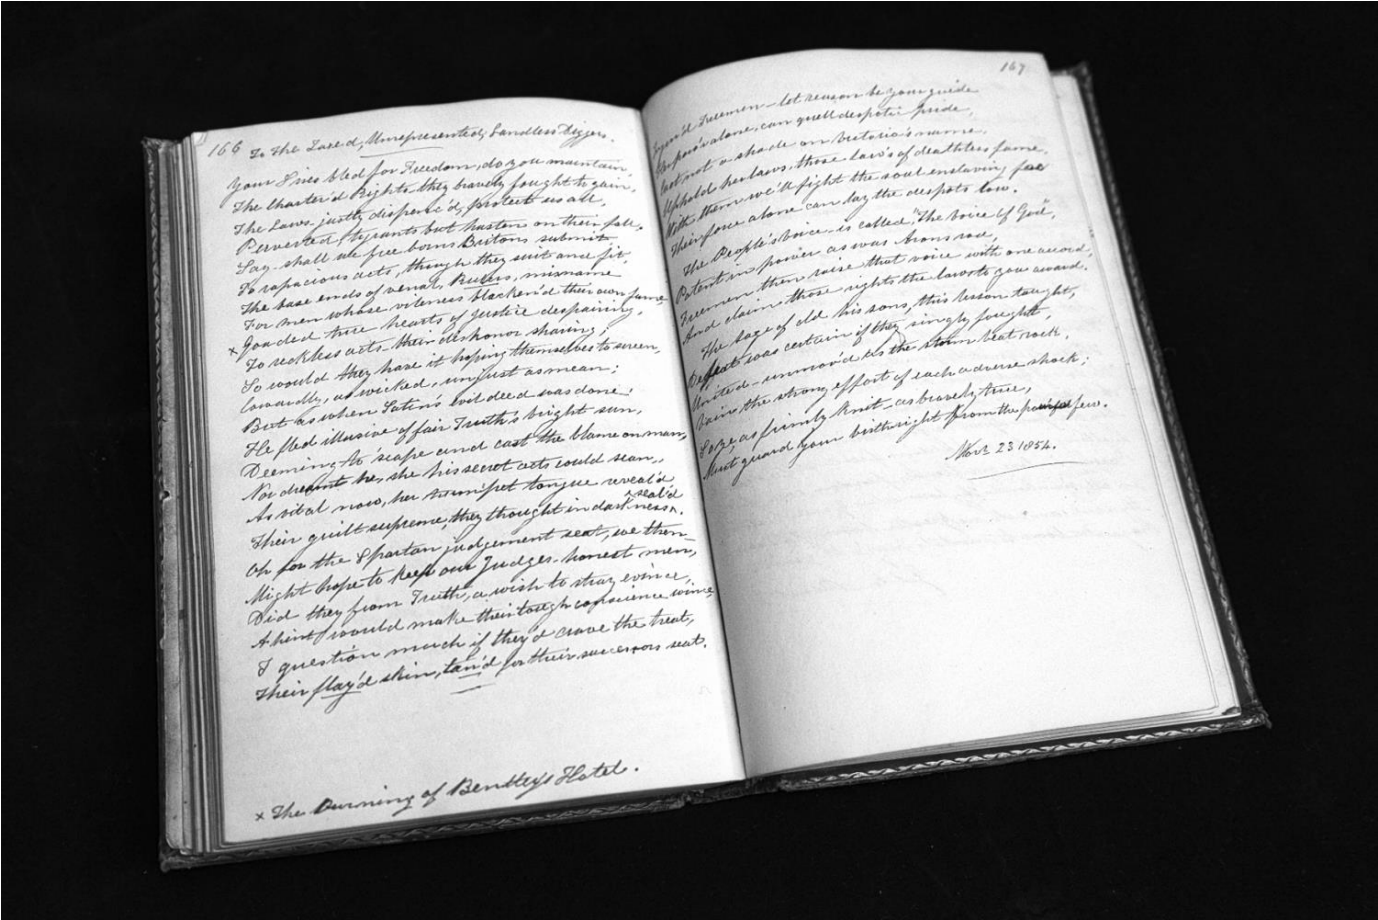 166
To the Taxed, Unrepresented, Landless Diggers.
Your Sires bled for Freedom, do you maintain,
The Charter'd Rights they bravely fought to gain,
The Laws, justly dispenc'd, protect us all,
Perverted, tyrants but hasten on their fall.
Say shall we free born Britons submit
To rapacious acts, though they suit and fit,
The base ends of venal Rulers, misname
For men whose vileness blacken'd their own fame,
x Goaded true hearts of justice despairing,
To reckless acts their dishonor sharing,
So would they have it hoping themselves to screen,
Cowardly, as wicked, unjust as mean;
But as when Satin's evil deed was done
He fled illusive of fair Truth's bright sun,
Deeming to 'scape and cast the blame on man,
Nor dreamt he, she his secret acts could scan,
As vital now, her trumpet tongue reveal'd
Their guilt supreme, they thought in darkness seal'd.
Oh for the Spartan judgement seat, we then
Might hope to keep our Judges honest men,
Did they from Truth, a wish to stray evince,
A hint would make their tough conscience wince
I question much if they'd crave the treat,
Their flay'd skin, tan'd for their successors seat.
x The Burning of Bentley's Hotel.
167
Freemen let reason be your guide
alone, can quell despotic pride,
Cast not a shade on Victoria's name,
Uphold her laws, those laws of deathless fame,
With them we'll fight the soul enslaving foe
Their force alone can lay the despots low.
The People's voice is called "The Voice of God",
Potent in power as was Arons rod,
Freemen then raise that voice with one accord,
And claim those rights the laws to you award.
The Sage of old his sons, this lesson taught,
Defeat was certain if they singly fought,
United unmov'd as the storm beat rock,
Vain the strong effort of each adverse shock;
So ye, as firmly knit as bravely true,
Must guard your birthright from the few.
Nov. 23 1854.